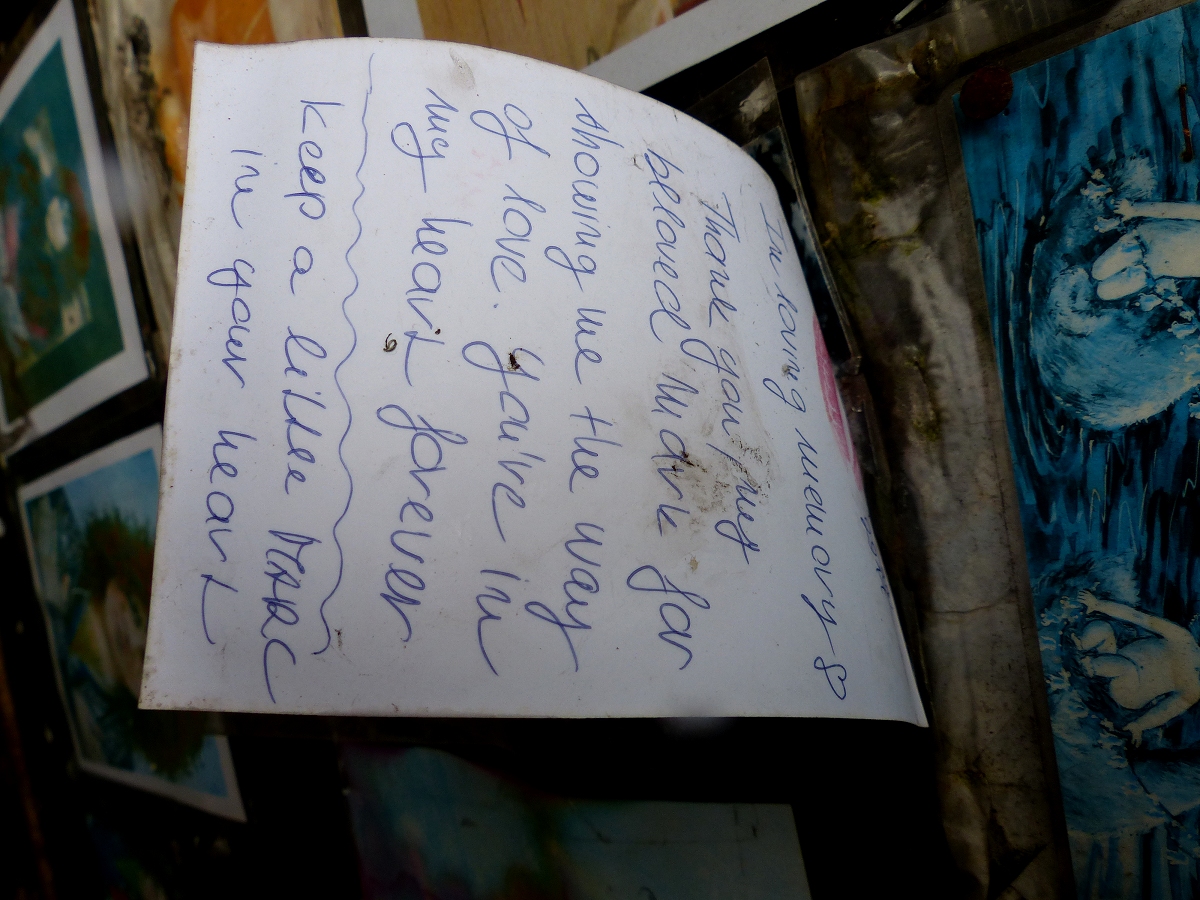 In loving memory
Thank you, my
beloved Mark for
showing me the way
of love. You're in
my heart forever
keep a little MARC
in your heart